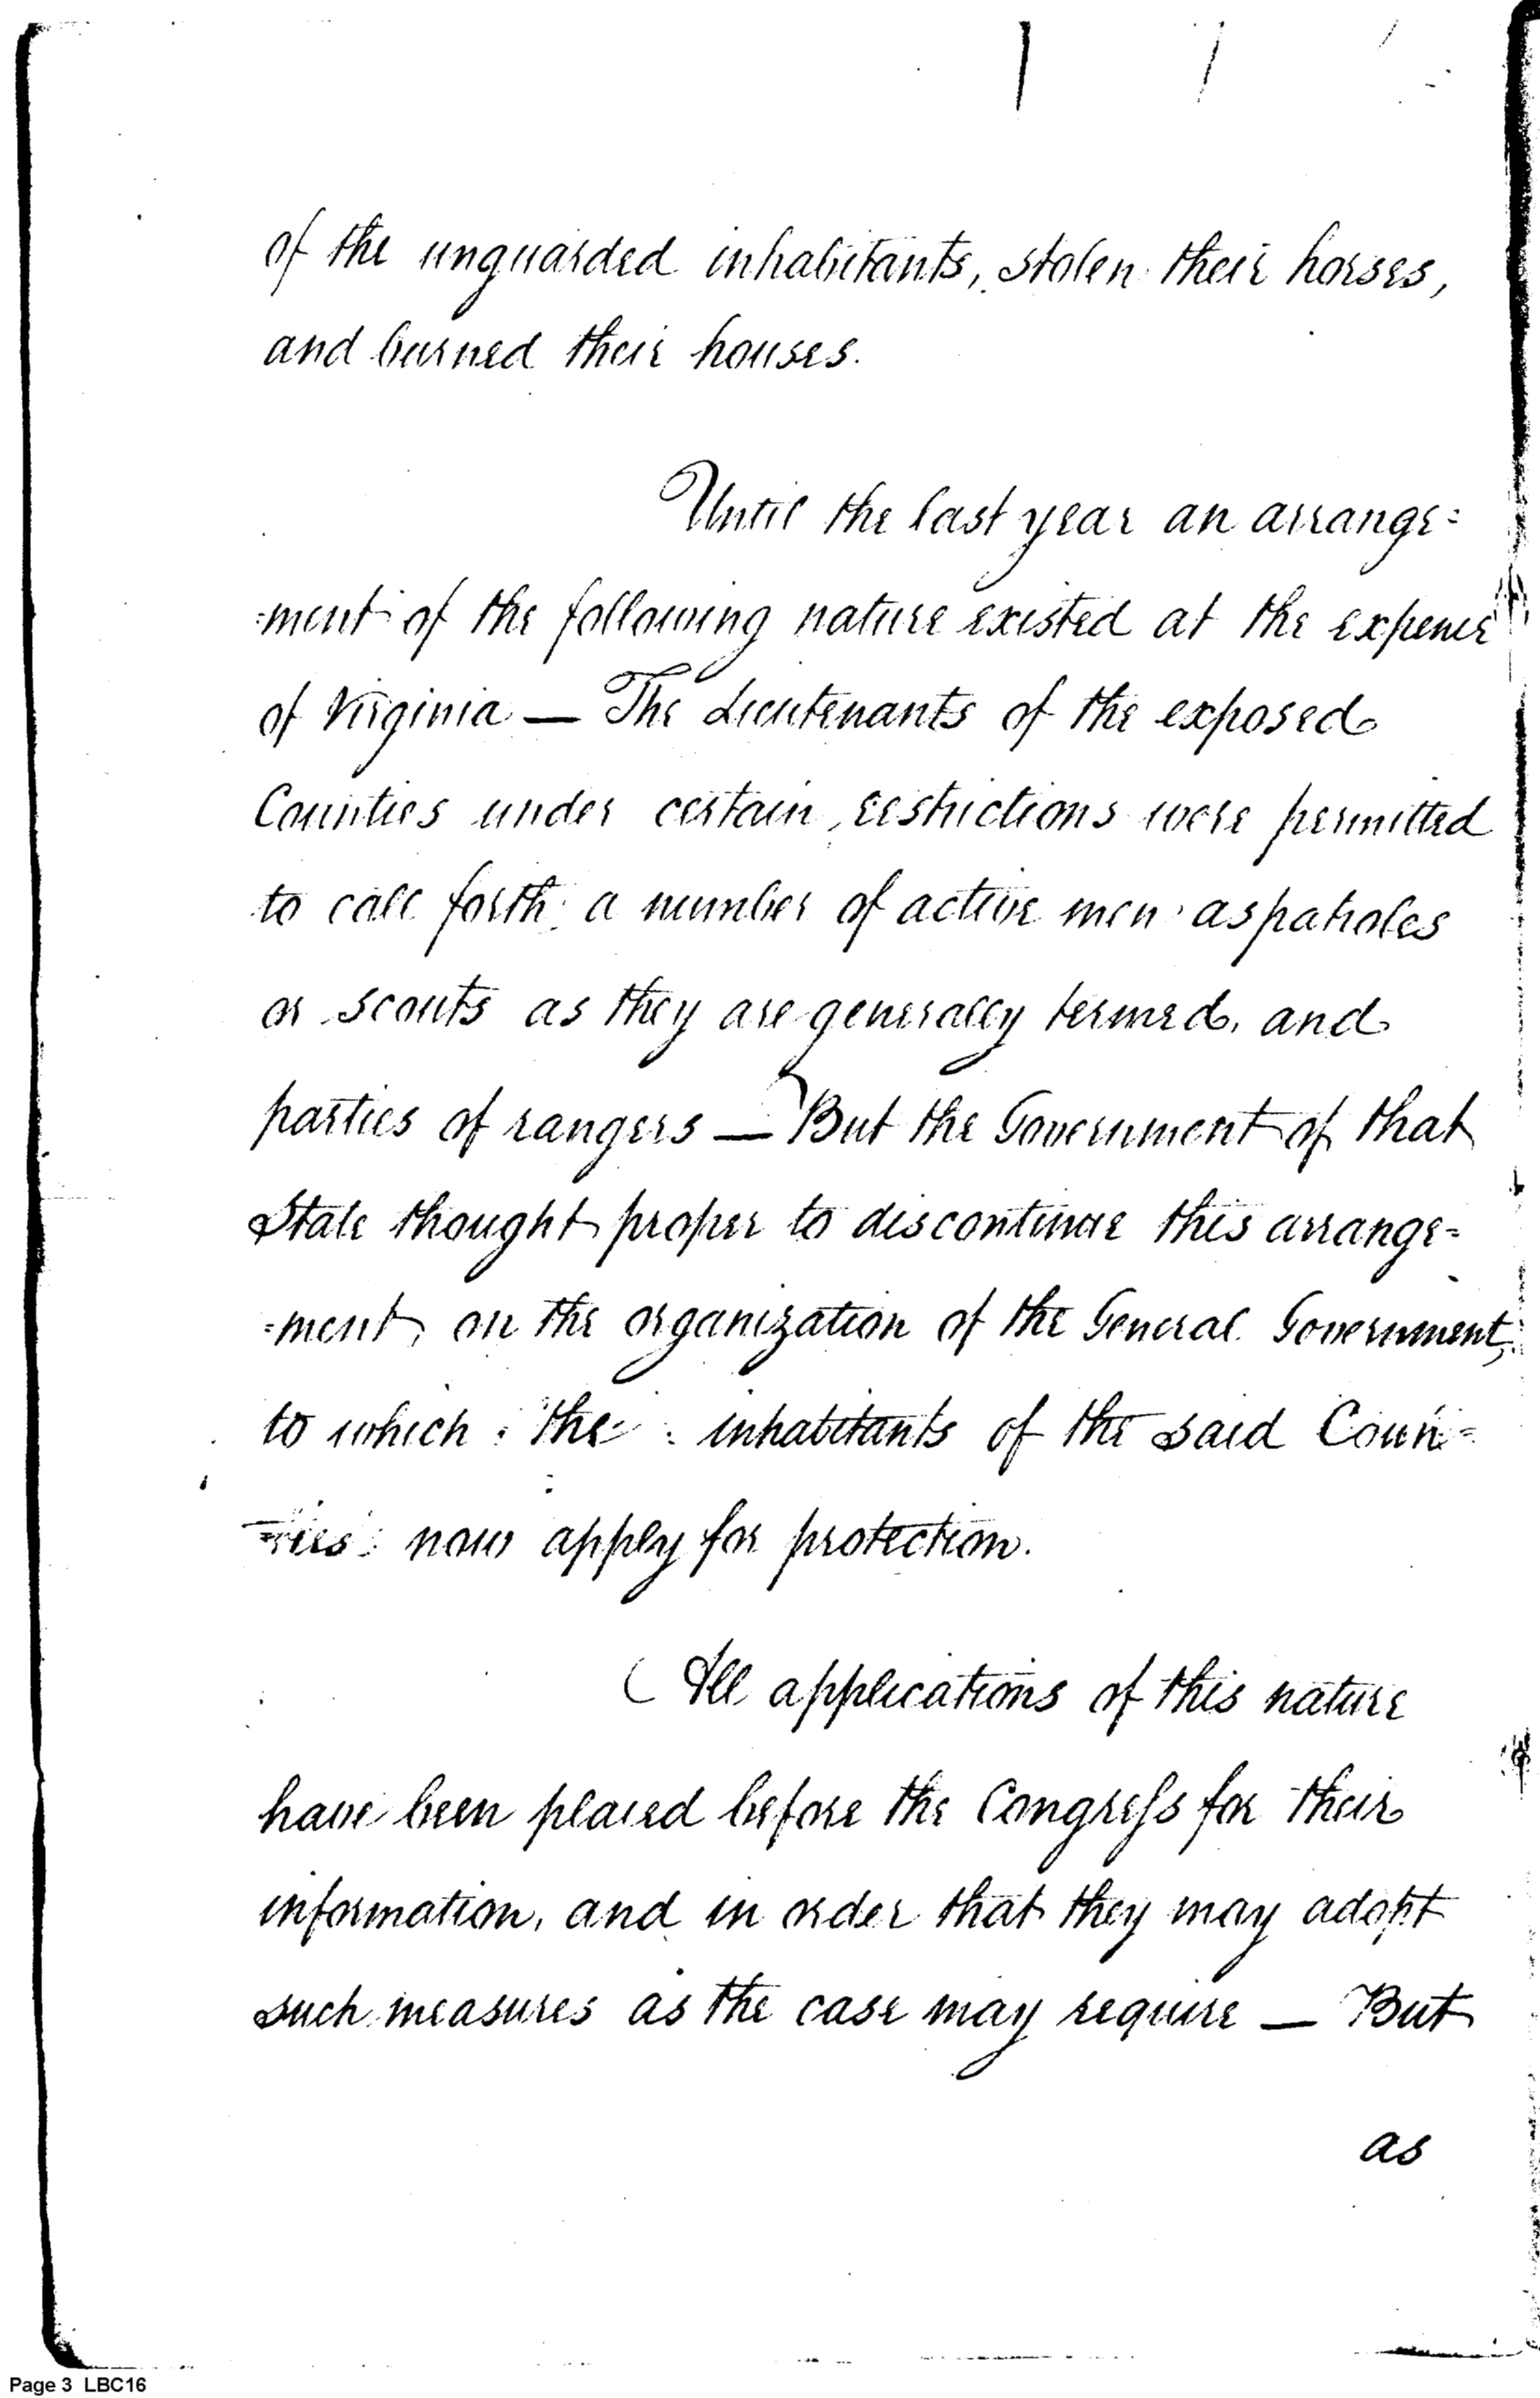 of the unguarded inhabitants, stolen their horses,
and burned their houses.
Until the last year an arrange=
=ment of the following nature existed at the expence
of Virginia — The Lieutenants of the exposed
Counties under certain restrictions were permitted
to call forth a number of active men as patroles
or scouts as they are generally termed, and
parties of rangers — But the Government of that
State thought proper to discontinue this arrange=
=ment, on the organization of the General Government,
to which the inhabitants of the said Coun=
=ties now apply for protection.
All applications of this nature
have been placed before the Congress for their
information, and in order that they may adopt
such measures as the case may require — But
as
Page 3 LBC16